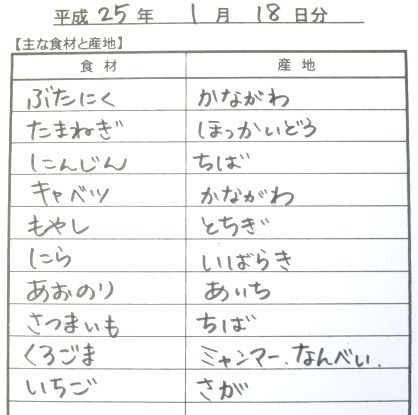 平成 25 年 1 月 18 日分
【主な食材と産地】
食材 産地
ぶたにく かながわ
たまねぎ ほっかいどう
にんじん ちば
キャベツ かながわ
もやし とちぎ
にら いばらき
あおのり あいち
さつまいも ちば
くろごま ミャンマー、なんべい、
いちご さが